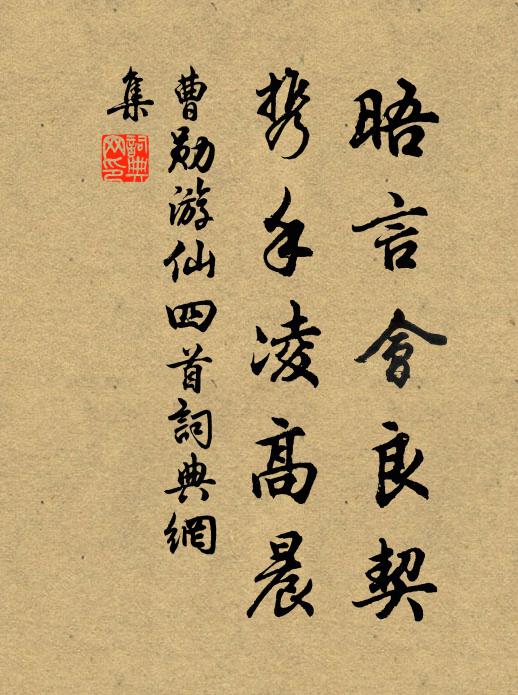 晤言會良契
携手凌高晨
曹勛游仙四首詞典網
集
詞典
网印